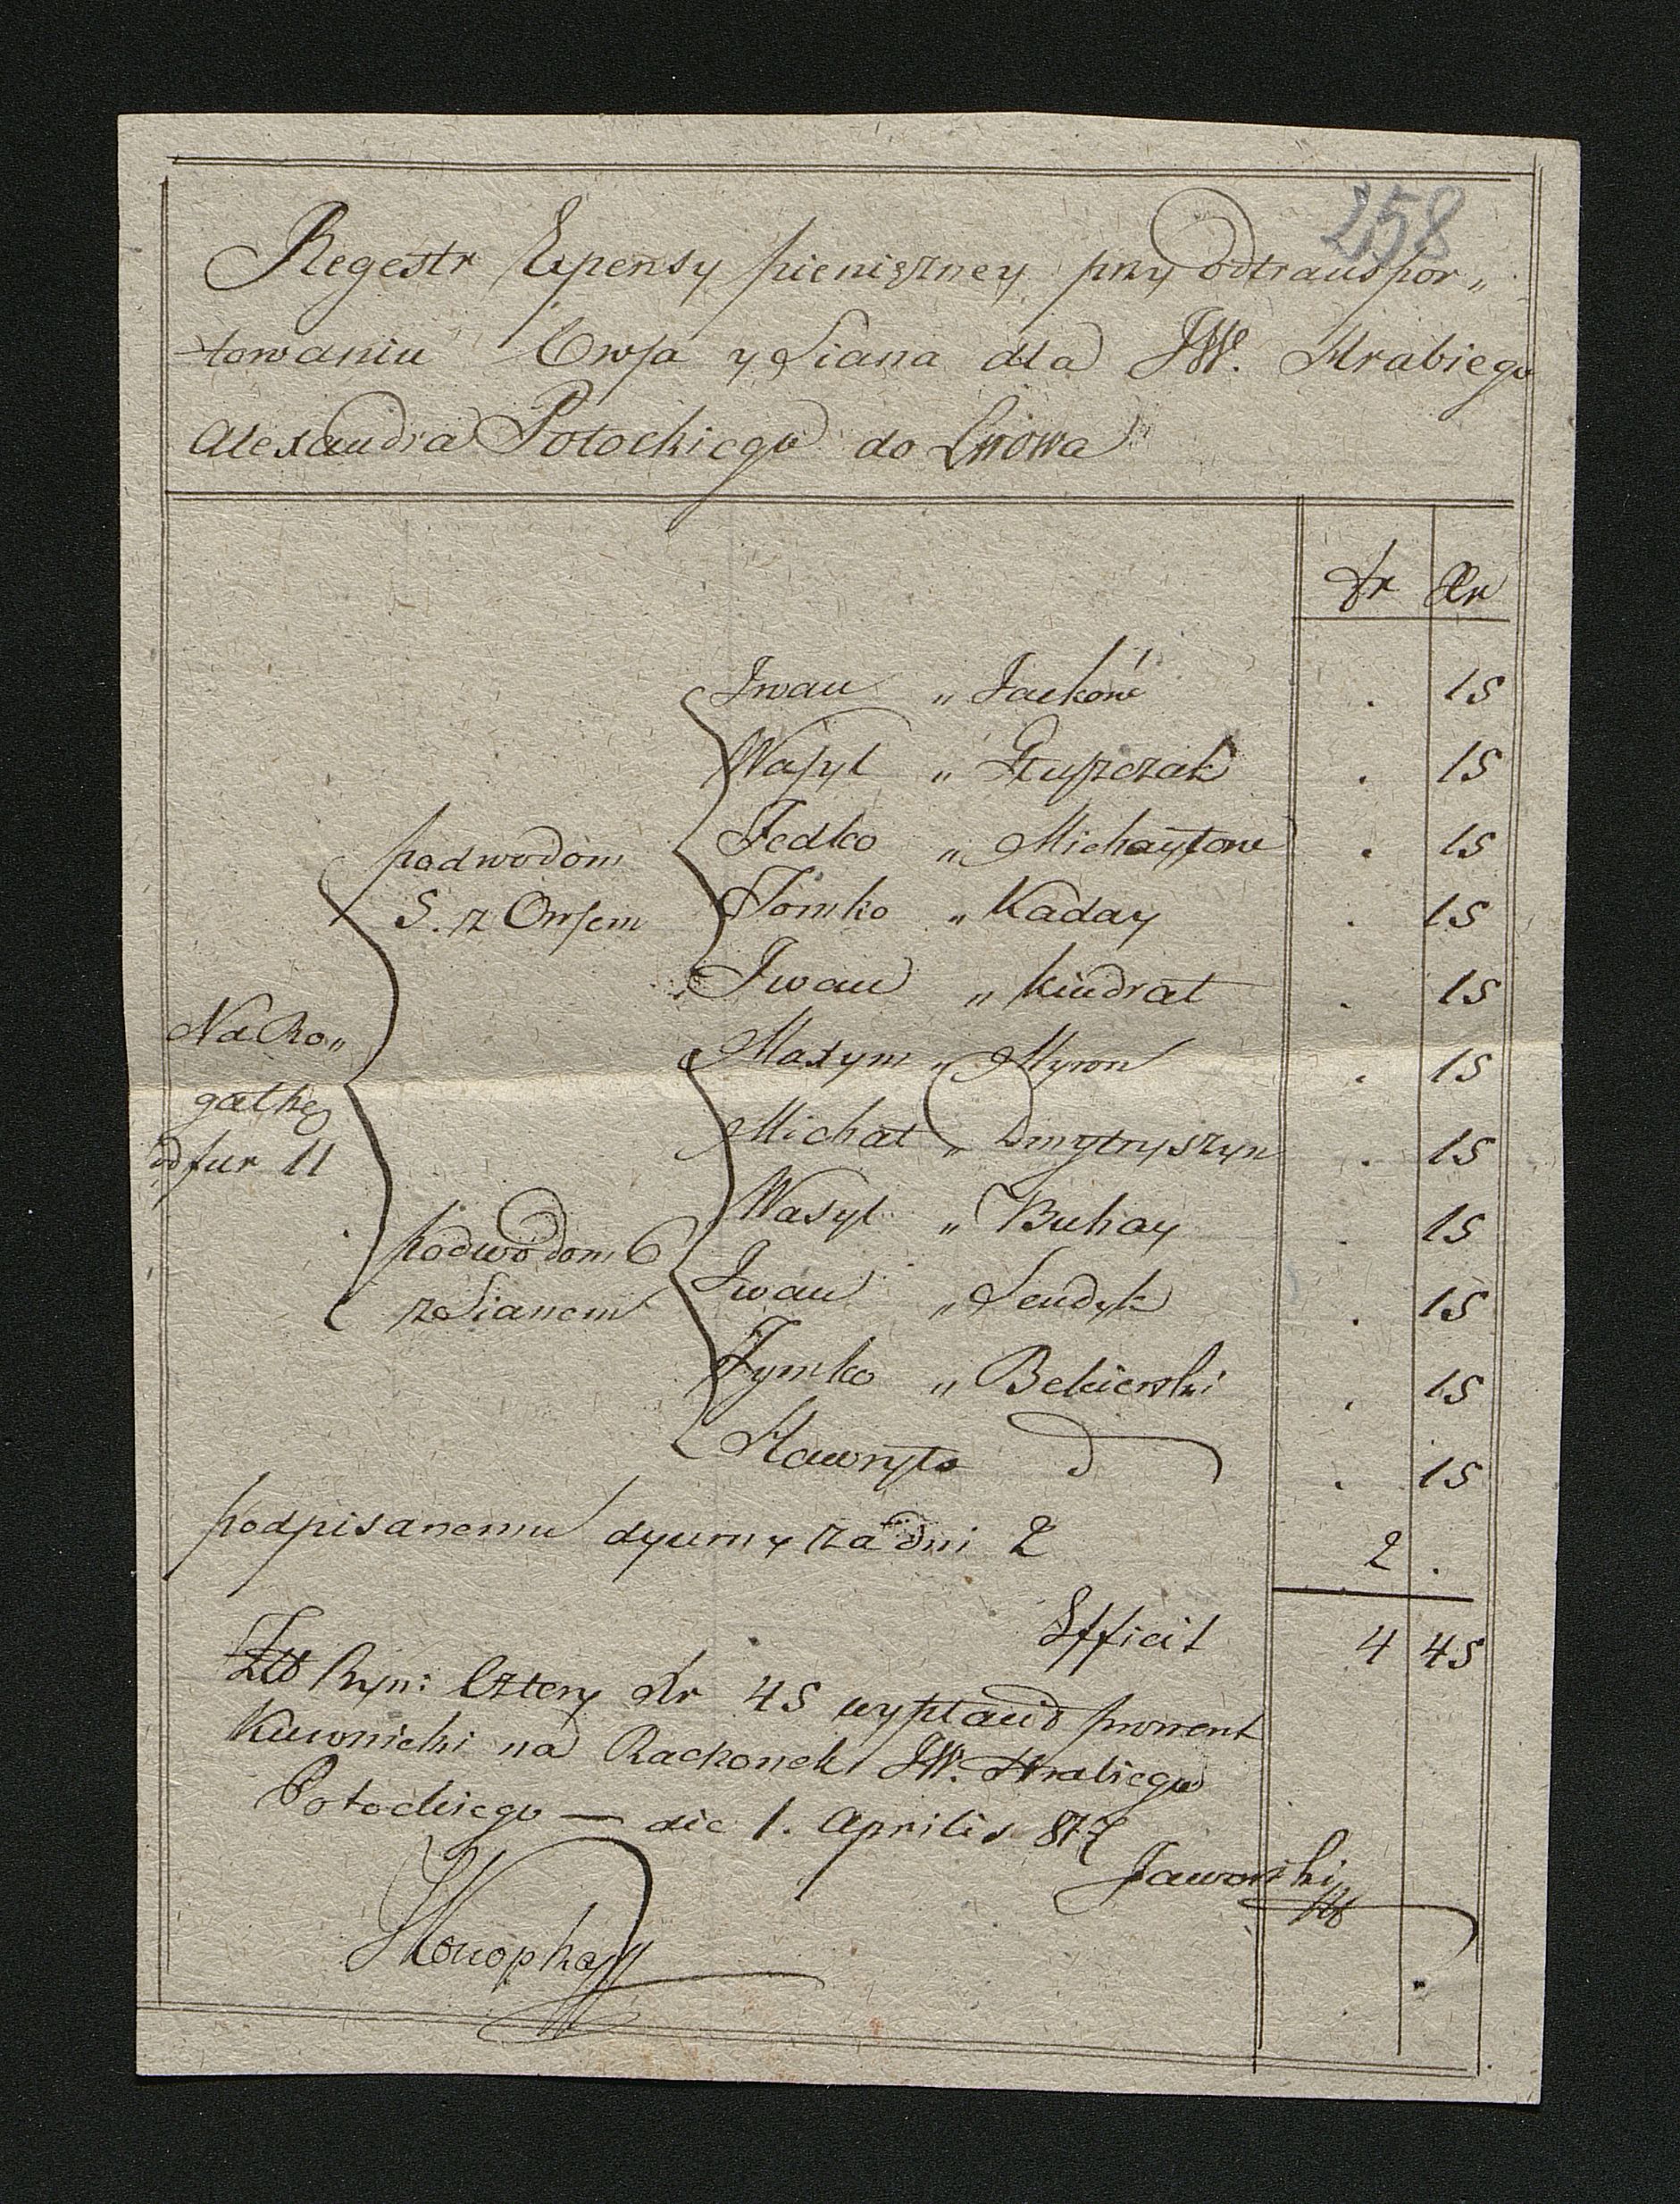 258
Regestr Expensy pieniężney przy odtranspor„
towaniu Owsa y Siana dla JW. Hrabiego
Alexandra Potockiego do Lwowa
fr Xr
Na Ro„
gatkę
od fur 11
podwodom
5. z Owsem
Iwan „ Jacków . 15
Wasyl „ . 15
Fedko „ Michayłow . 15
Tomko „ Kaday . 15
Iwan „ Kindrat . 15
podwodom 6
z Sianem
Maxym „ Myron . 15
Michał „ Dmytryszyn . 15
Wasyl „ Buhay . 15
Iwan „ Sendyk . 15
Tymko „ . 15
Hawryło . 15
podpisanemu dyurny za dni 2 2 .
Efficit 4 45
Ryn: Cztery Xr 45 prowent
na Rachonek JW. Hrabiego
Potockiego — die 1. Aprilis 817
Jaworski
Konopka